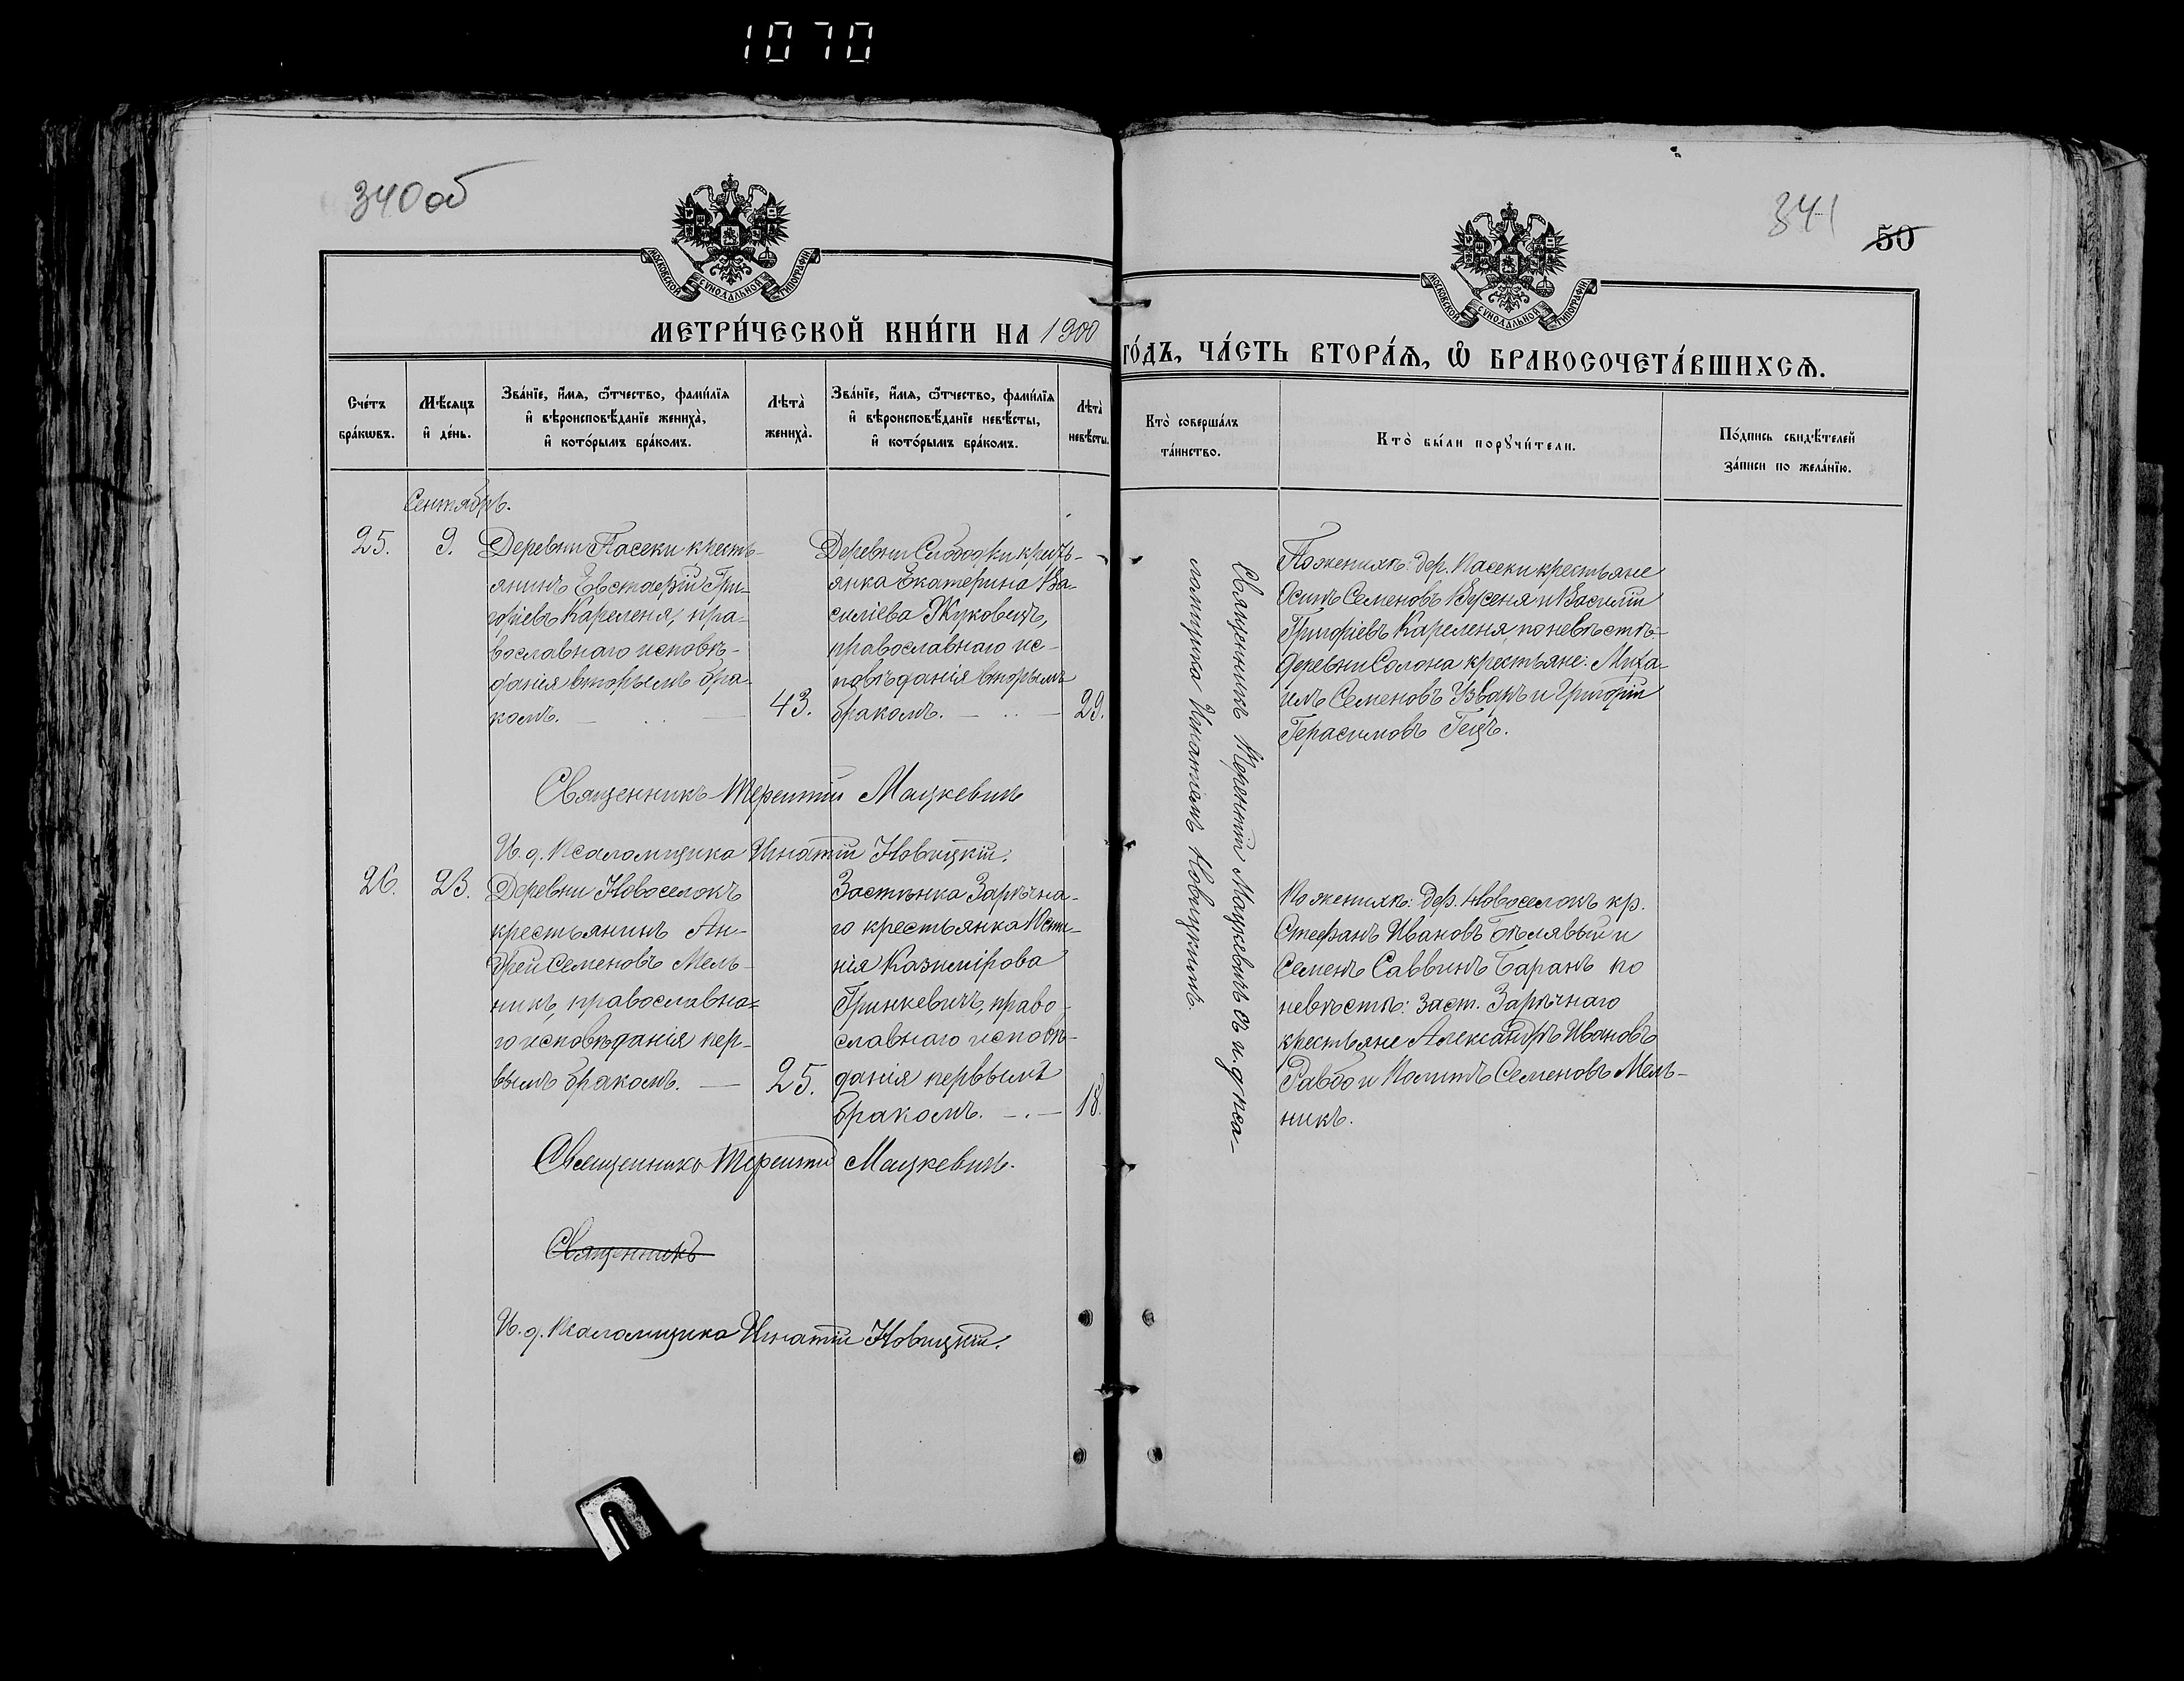 1070
340 об
341
50
МОСКОВСКОЙ СѴНОДАЛЬНОЙ ТИПОГРАФІИ
МОСКОВСКОЙ СѴНОДАЛЬНОЙ ТИПОГРАФІИ
МЕТРИ́ЧЕСКОЙ КНИ́ГИ НА 1900
ГО́ДЪ, ЧА́СТЬ ВТОРА́Ѧ, Ѽ БРАКОСОЧЕТА́ВШИХСѦ.
Сче́тъ
бра́кѡвъ.
Мѣ́сяцъ
и҆ де́нь.
Зва́нїе, и҆́мя, ѻ҆́тчество, фами́лїя
и҆ вѣроисповѣ́данїе жениха̀,
и҆ кото́рымъ бра́комъ.
Лѣта̀
жениха̀.
Зва́нїе, и҆́мя, ѻ҆́тчество, фами́лїя
и҆ вѣроисповѣ́данїе невѣ́сты,
и҆ кото́рымъ бра́комъ.
Лѣта̀
невѣ́сты.
Кто̀ соверша́лъ
та́инство.
Кто̀ бы́ли порꙋчи́тели.
По́дпись свидѣ́телей
за́писи по жела́нїю.
Сентябрь.
25.
9.
Деревни Пасеки кресть-
янинъ Евстафій Гри-
горіевъ Кареленя, пра-
вославнаго исповѣ-
данія вторымъ бра-
комъ.
43.
Деревни Слободки кресть-
янка Екатерина Ва-
силіева Жуковичъ,
православнаго ис-
повѣданія вторымъ
бракомъ.
29.
Священникъ Терентій Мацкевичъ съ и. д. пса-
ломщика Игнатіемъ Новицкимъ.
По женихѣ: дер. Пасеки крестьяне
Осипъ Семеновъ и Василій
Григоріевъ Кареленя, по невѣстѣ
деревни Солона крестьяне: Миха-
илъ Семеновъ и Григорій
Герасимовъ Гецъ.
Священникъ Терентій Мацкевичъ
И. д. Псаломщика Игнатій Новицкій.
26.
23.
Деревни Новоселокъ
крестьянинъ Ан-
дрей Семеновъ Мель-
никъ, православна-
го исповѣданія пер-
вымъ бракомъ. —
25.
Застѣнка Зарѣчна-
го крестьянка Юсти-
нія Казимірова
Гринкевичъ, право-
славнаго исповѣ-
данія первымъ
бракомъ.
18.
По женихѣ: Дер. Новоселокъ кр.
Стефанъ Ивановъ Бѣлявый и
Семенъ Саввинъ Баранъ по
невѣстѣ: заст. Зарѣчнаго
крестьяне Александръ Ивановъ
Равбо и Семеновъ Мель-
никъ.
Священникъ Терентій Мацкевичъ.
Священникъ
И. д. Псаломщика Игнатій Новицкій.